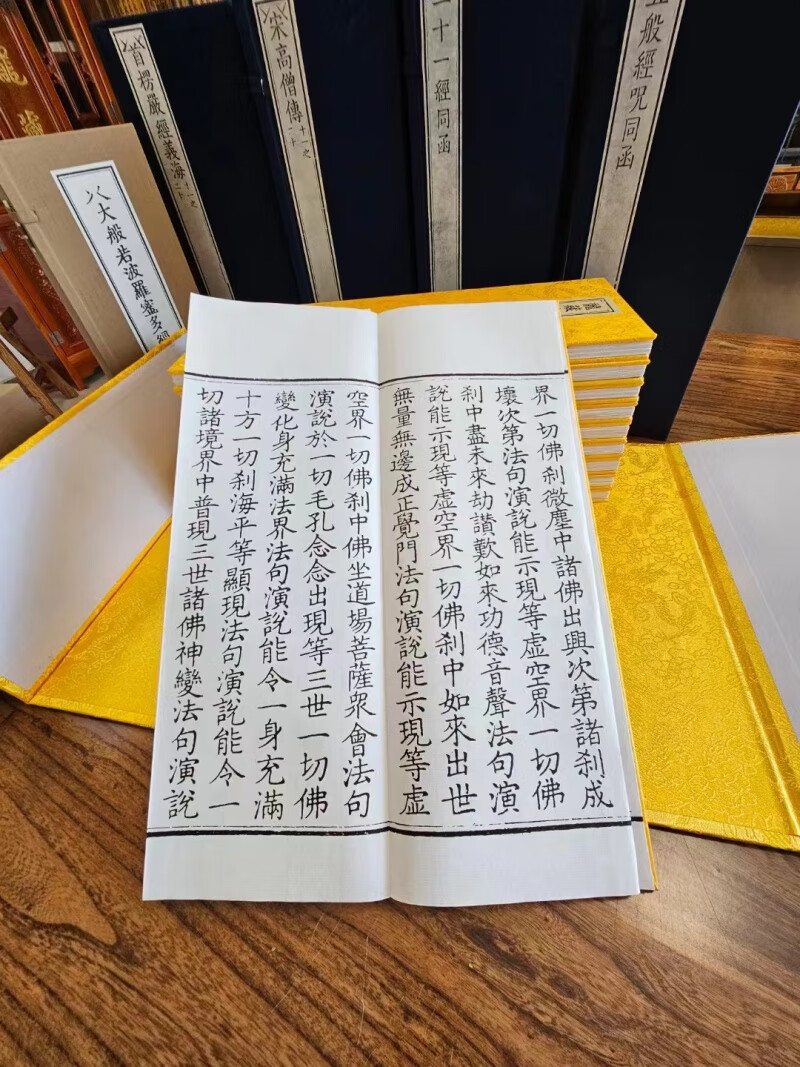 五般經呪同函
二十一經同函
宋高僧傳 十一之二十
首楞嚴經義海 十一之二十
大般若波羅蜜多經
界一切佛刹微塵中諸佛出興次第諸刹成
壞次第法句演說能示現等虛空界一切佛
刹中盡未來劫讃歎如來功德音聲法句演
說能示現等虛空界一切佛刹中如來出世
無量無邊成正覺門法句演說能示現等虛
空界一切佛刹中佛坐道場菩薩衆會法句
演說於一切毛孔念念出現等三世一切佛
變化身充滿法界法句演說能令一身充滿
十方一切刹海平等顯現法句演說能令一
切諸境界中普現三世諸佛神變法句演說